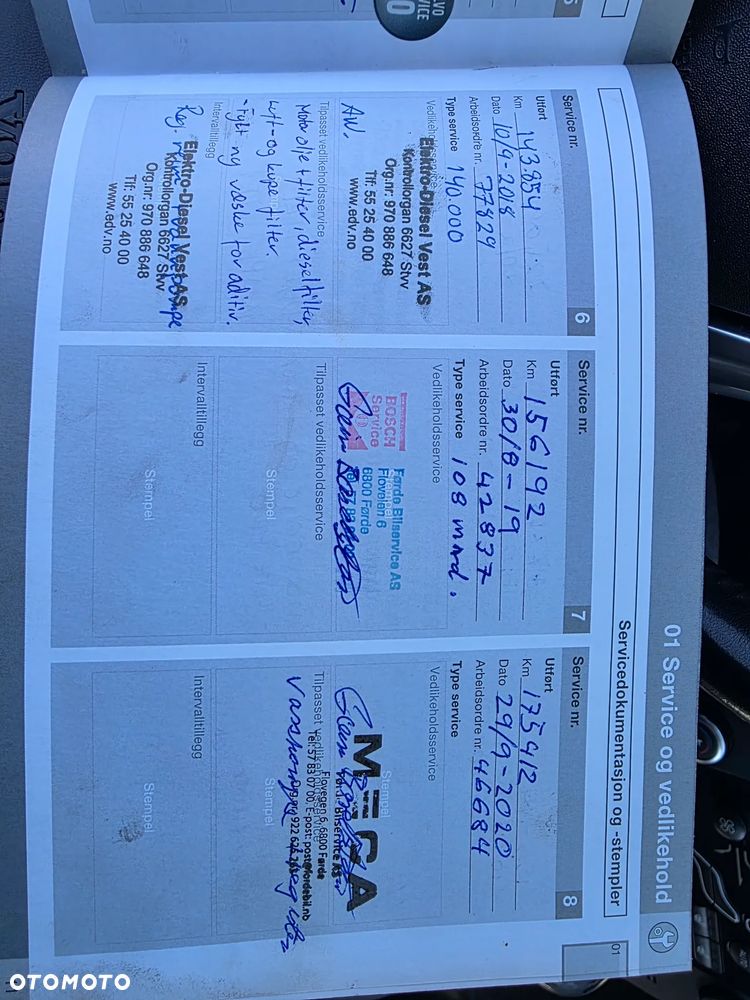 01 Service og vedlikehold
Servicedokumentasjon og -stempler
01
Service nr. 6
Utført
Km 143.854
Dato 10/9-2018
Arbeidsordre nr. 77829
Type service 140.000
Vedlikeholdsservice
Elektro-Diesel Vest AS
Kontrollorgan 6627 Shv
Org.nr: 970 886 648
Tlf: 55 25 40 00
www.edv.no
AW.
Tilpasset vedlikeholdsservice
Motorolje + filter, dieselfilter
luft- og kupefilter.
- Fylt ny væske for aditiv.
Intervalltillegg
Reg.
Elektro-Diesel Vest AS
Kontrollorgan 6627 Shv
Org.nr: 970 886 648
Tlf: 55 25 40 00
www.edv.no
Service nr. 7
Utført
Km 156192
Dato 30/8-19
Arbeidsordre nr. 42837
Type service 108 mnd.
Vedlikeholdsservice
BOSCH
Service
Førde Bilservice AS
Floveien 6
6800 Førde
Tilpasset vedlikeholdsservice
Stempel
Intervalltillegg
Stempel
Service nr. 8
Utført
Km 175412
Dato 29/9-2020
Arbeidsordre nr. 46684
Type service
Vedlikeholdsservice
Stempel
MECA
Bilservice AS
Flovegen 6, 6800 Førde
Tel: 57 83 07 00, E-post: post@fordebil.nb
Tilpasset vedlikeholdsservice
Stempel
Intervalltillegg
Stempel
OTOMOTO